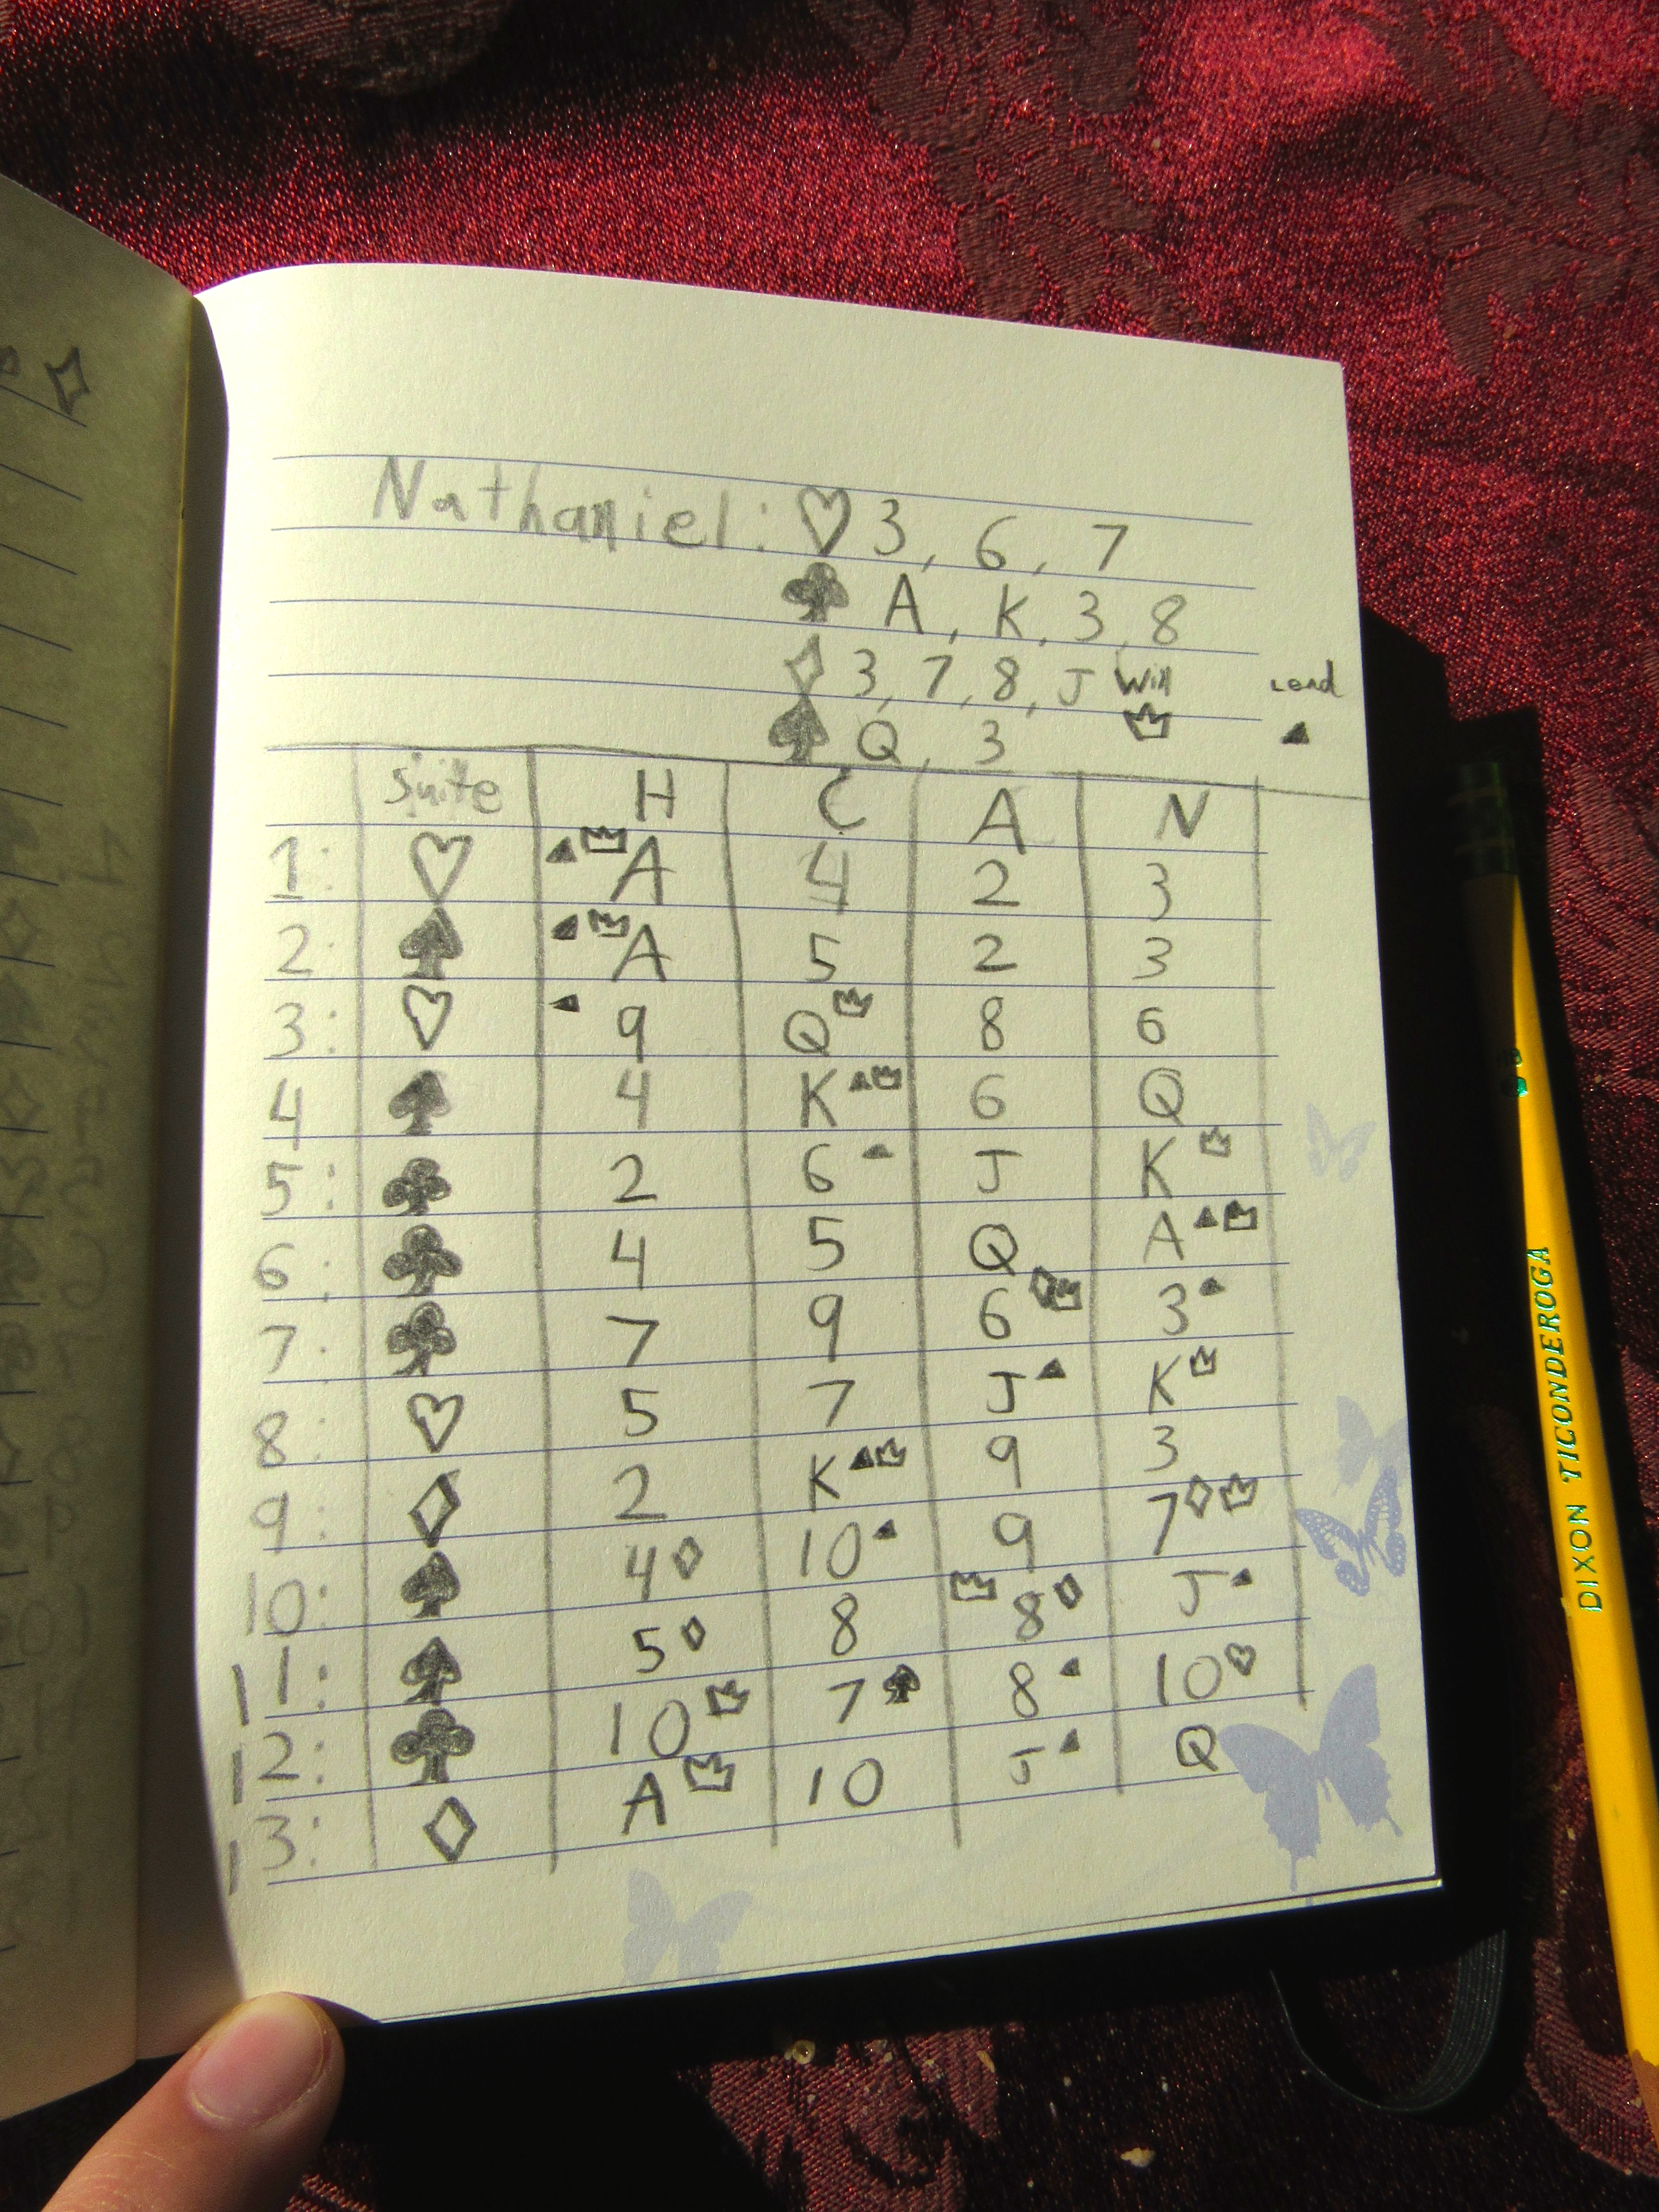 Nathaniel: ♡ 3, 6, 7
♣ A, K, 3, 8
♢ 3, 7, 8, J Win Lead
♠ Q, 3 ▲
Suite H C A N
1: ♡ ▲ A 4 2 3
2: ♠ ▲ A 5 2 3
3: ♡ ▲ 9 Q 8 6
4 ♠ 4 K ▲ 6 Q
5: ♣ 2 6 ▲ J K
6: ♣ 4 5 Q A ▲
7: ♣ 7 9 6 ♢ 3 ▲
8: ♡ 5 7 J ▲ K
9: ♢ 2 K ▲ 9 3
10: ♠ 4 ♢ 10 ▲ 9 7 ♢
11: ♠ 5 ♢ 8 8 ♢ J ▲
12: ♣ 10 7 ♠ 8 ▲ 10 ♡
13: ♢ A 10 J ▲ Q
DIXON TICONDEROGA